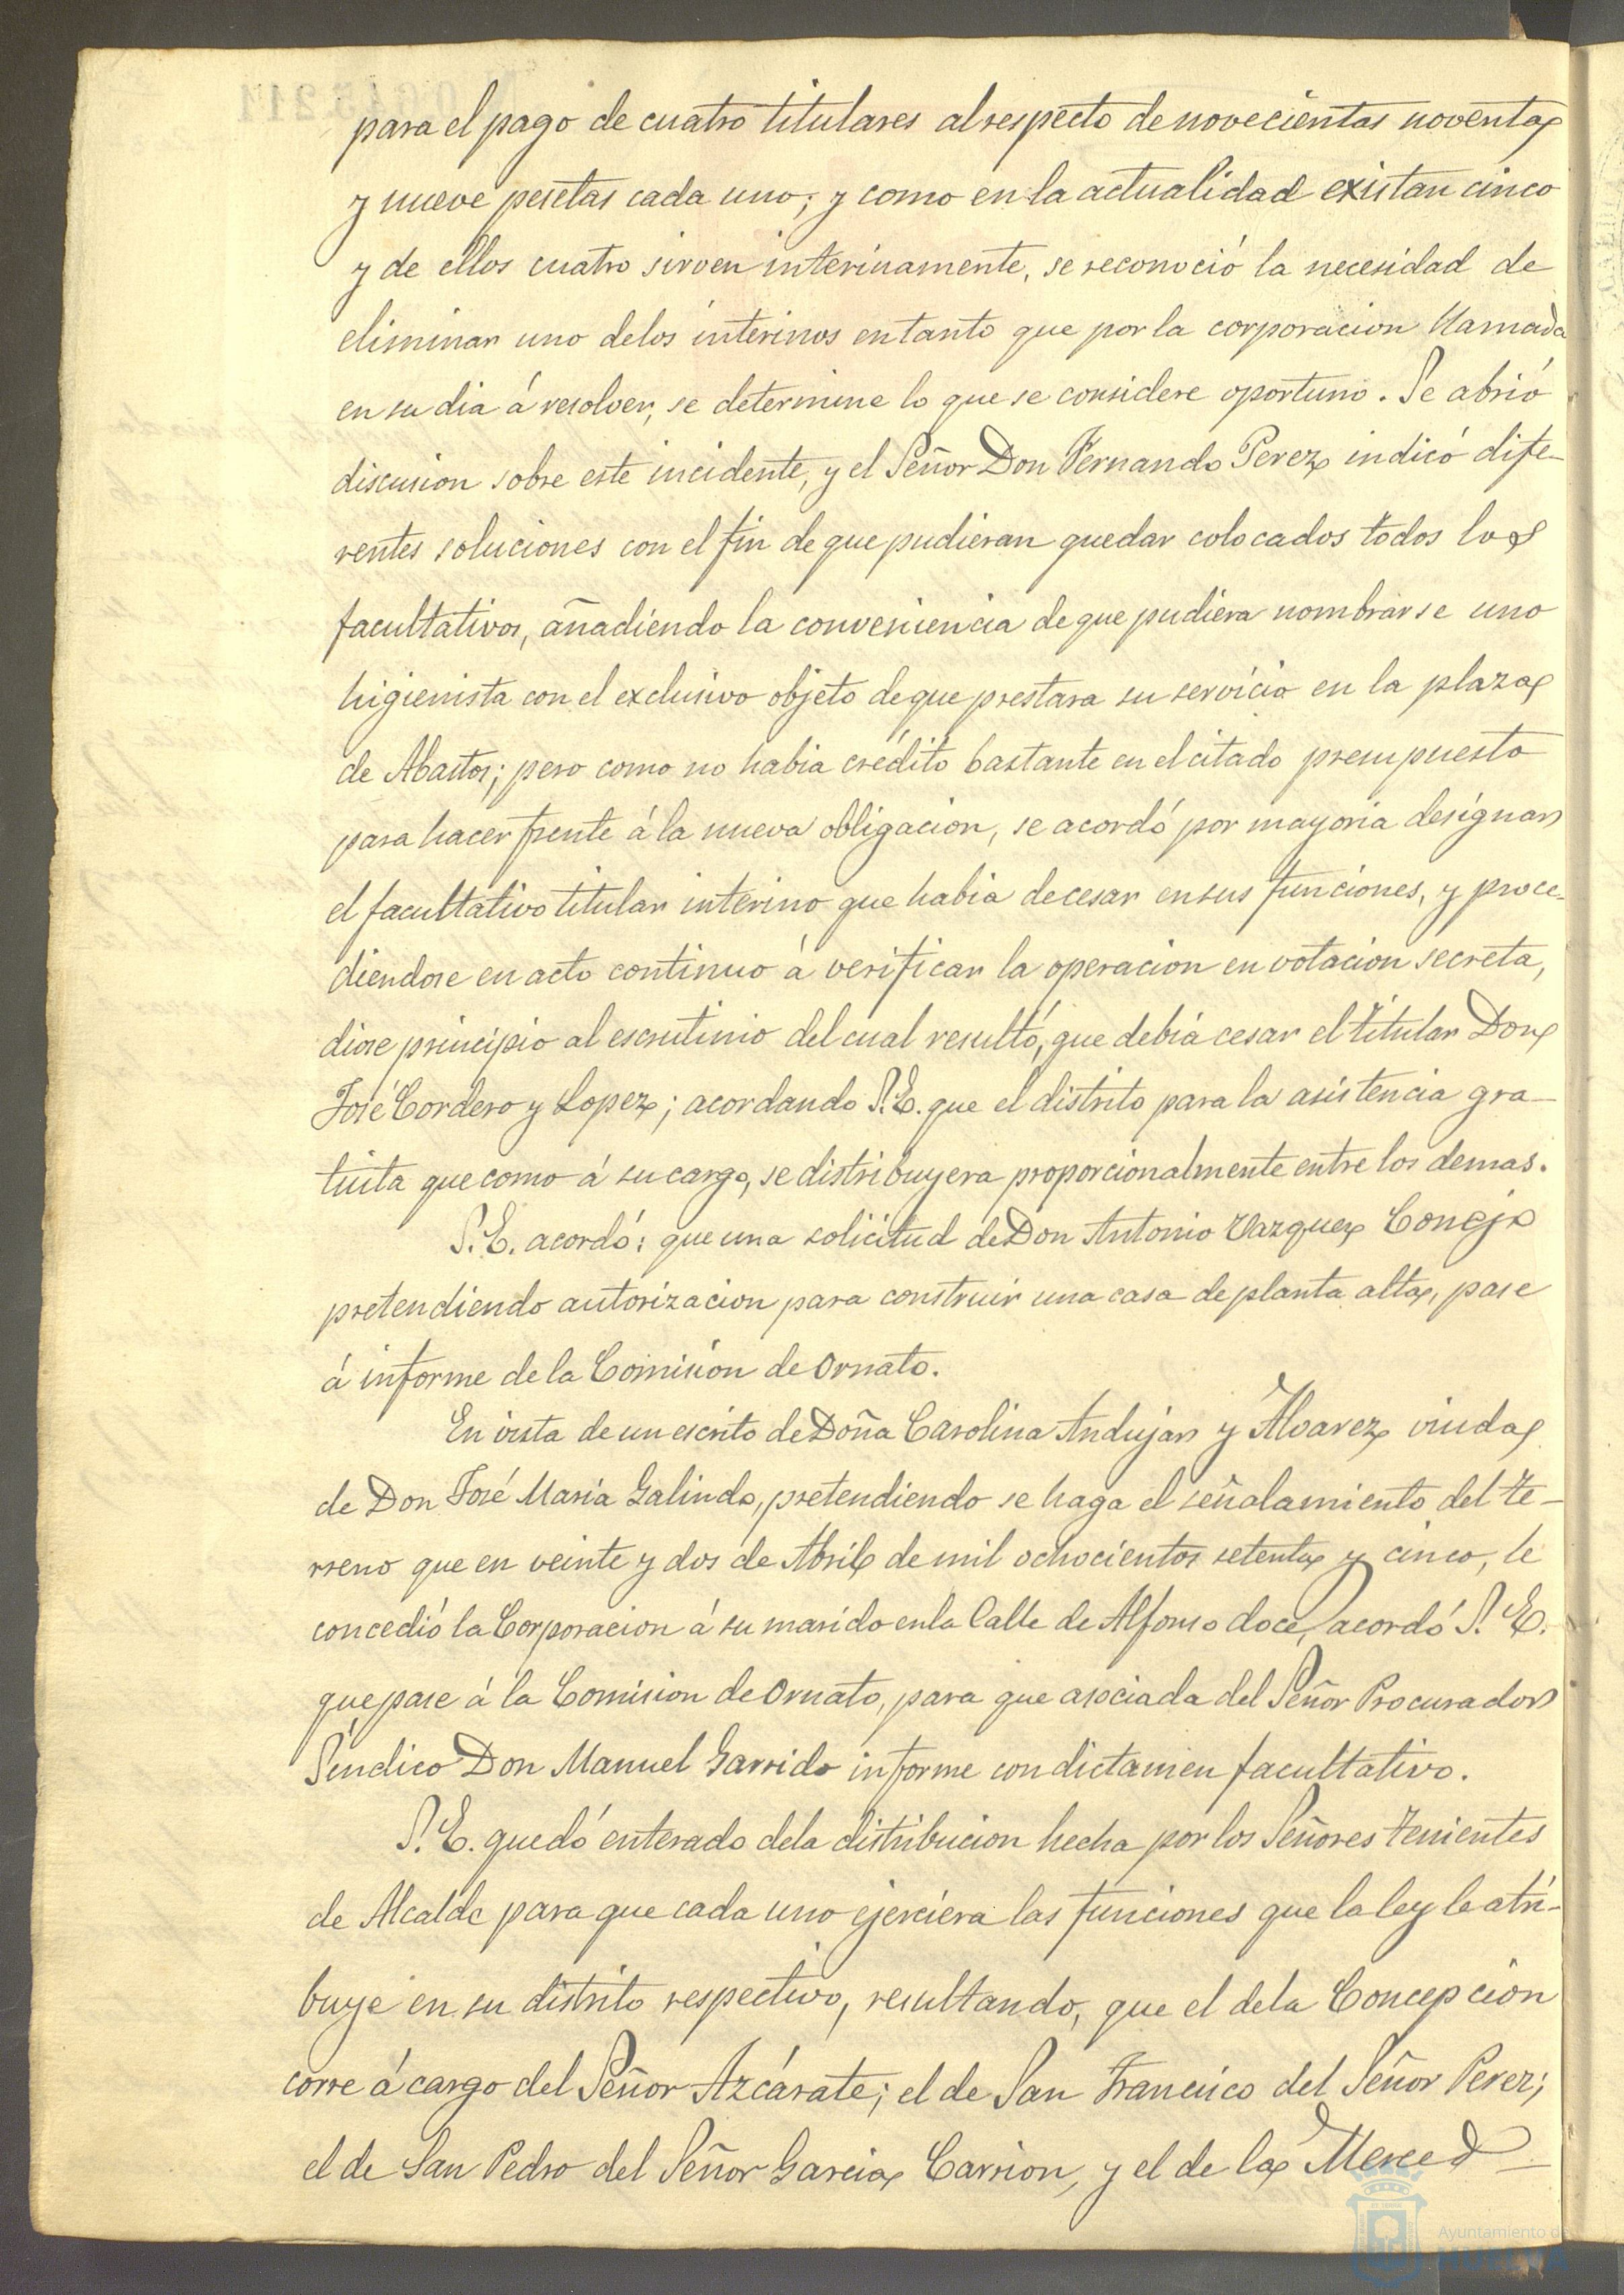 para el pago de cuatro titulares al respecto de novecientas noventa
y nueve pesetas cada uno; y como en la actualidad existan cinco
y de ellos cuatro sirven interinamente, se reconoció la necesidad de
eliminar uno delos interinos entanto que por la corporacion llamada
en su dia á resolver, se determine lo que se considere oportuno. Se abrió
discusion sobre este incidente, y el Señor Don Fernando Perez indicó dife-
rentes soluciones con el fin de que pudieran quedar colocados todos los
facultativos, añadiendo la conveniencia de que pudiera nombrarse uno
higienista con el exclusivo objeto de que prestara su servicio en la plaza
de Abastos; pero como no habia crédito bastante en el citado presupuesto
para hacer frente á la nueva obligacion, se acordó por mayoria designar
el facultativo titular interino que habia de cesar en sus funciones, y proce-
diendose en acto continuo á verificar la operacion en votacion secreta,
diose principio al escrutinio del cual resultó, que debia cesar el titular Don
José Cordero y Lopez; acordando S.E. que el distrito para la asistencia gra-
tuita que como á su cargo, se distribuyera proporcionalmente entre los demas.
S.E. acordó: que una solicitud de Don Antonio Vazquez Conejo
pretendiendo autorizacion para construir una casa de planta alta, pase
á informe de la Comision de Ornato.
En vista de un escrito de Doña Carolina Andujar y Álvarez viuda
de Don José Maria Galindo, pretendiendo se haga el señalamiento del te-
rreno que en veinte y dos de Abril de mil ochocientos setenta y cinco, le
concedió la Corporacion á su marido en la Calle de Alfonso doce, acordó S.E.
que pase á la Comision de Ornato, para que asociada del Señor Procurador
Síndico Don Manuel Garrido informe con dictamen facultativo.
S.E. quedó enterado dela distribucion hecha por los Señores Tenientes
de Alcalde para que cada uno ejerciera las funciones que la ley le atri-
buye en su distrito respectivo, resultando, que el dela Concepcion
corre á cargo del Señor Azcárate; el de San Francisco del Señor Perez;
el de San Pedro del Señor Garcia Carrion, y el de la Merced
Ayuntamiento de
HUELVA